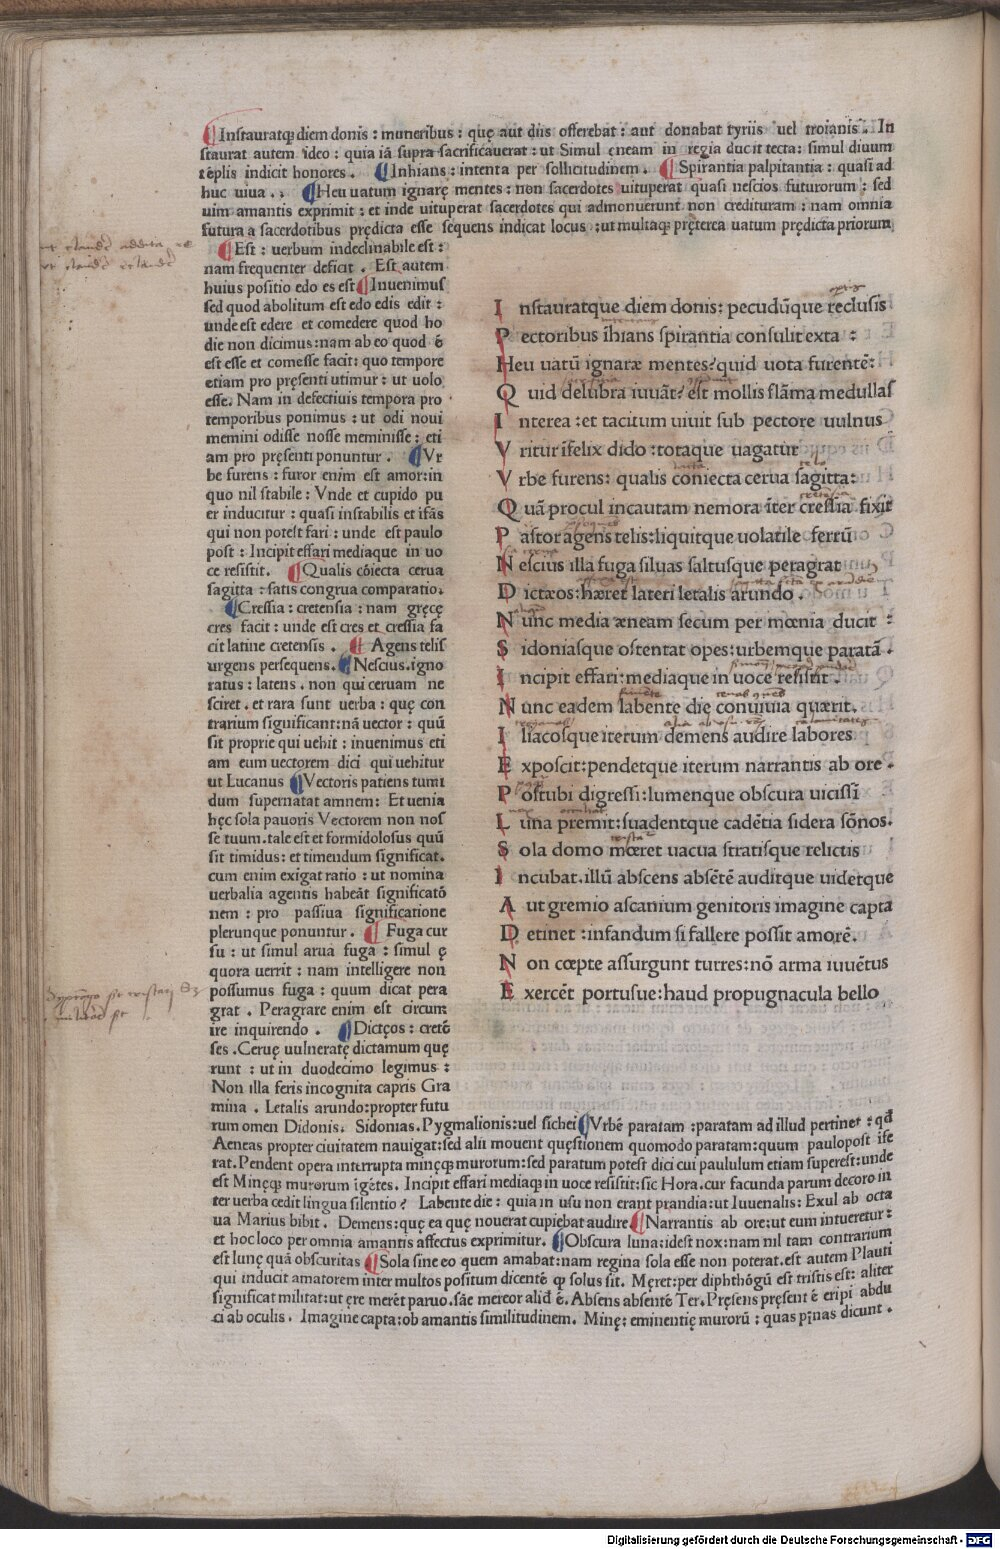 Instauratq; diem donis : muneribus : quę aut diis offerebat : aut donabat tyriis uel troianis . In
staurat autem ideo : quia iā supra sacrificauerat : ut Simul eneam in regia ducit tecta : simul diuum
tēplis indicit honores . Inhians : intenta per sollicitudinem . Spirantia palpitantia : quasi ad
huc uiua . Heu uatum ignarę mentes : non sacerdotes uituperat quasi nescios futurorum : sed
uim amantis exprimit : et inde uituperat sacerdotes qui admonuerunt non credituram : nam omnia
futura a sacerdotibus prędicta esse sequens indicat locus : ut multaq; pręterea uatum prędicta priorum
Est : uerbum indeclinabile est :
nam frequenter deficit . Est autem
huius positio edo es est Inuenimus
sed quod abolitum est edo edis edit :
unde est edere et comedere quod ho
die non dicimus : nam ab eo quod ē
est esse et comesse facit : quo tempore
etiam pro pręsenti utimur : ut uolo
esse. Nam in defectiuis tempora pro
temporibus ponimus : ut odi noui
memini odisse nosse meminisse : eti
am pro pręsenti ponuntur . Vr
be furens : furor enim est amor : in
quo nil stabile : Vnde et cupido pu
er inducitur : quasi instabilis et īfās
qui non potest fari : unde est paulo
post : Incipit effari mediaque in uo
ce resistit. Qualis cōiecta cerua
sagitta : satis congrua comparatio.
Cressia : cretensia : nam gręcę
cres facit : unde est cres et cressia fa
cit latine cretensis . Agens telis
urgens persequens. Nescius . igno
ratus : latens . non qui ceruam ne
sciret . et rara sunt uerba : quę con
trarium significant : nā uector : quū
sit proprie qui uehit : inuenimus eti
am eum uectorem dici qui uehitur
ut Lucanus Vectoris patiens tumi
dum supernatat amnem : Et uenia
hęc sola pauoris Vectorem non nos
se tuum . tale est et formidolosus quū
sit timidus : et timendum significat.
cum enim exigat ratio : ut nomina
uerbalia agentis habeāt significatō
nem : pro passiua significatione
plerunque ponuntur . Fuga cur
su : ut simul arua fuga : simul ę
quora uerrit : nam intelligere non
possumus fuga : quum dicat pera
grat . Peragrare enim est circum
ire inquirendo . Dictęos : cretē
ses . Ceruę uulneratę dictamum quę
runt : ut in duodecimo legimus :
Non illa feris incognita capris Gra
mina . Letalis arundo : propter futu
rum omen Didonis. Sidonias . Pygmalionis : uel sichei Vrbē paratam : paratam ad illud pertinet : qđ
Aeneas propter ciuitatem nauigat : sed alii mouent quęstionem quomodo paratam : quum paulopost īfe
rat . Pendent opera interrupta minęq; murorum : sed paratum potest dici cui paululum etiam superest : unde
est Minęq; murorum īgētes . Incipit effari mediaq; in uoce resistit : sic Hora . cur facunda parum decoro in
ter uerba cedit lingua silentio ? Labente die : quia in usu non erant prandia : ut Iuuenalis : Exul ab octa
ua Marius bibit . Demens : quę ea quę nouerat cupiebat audire Narrantis ab ore : ut eum intueretur :
et hoc loco per omnia amantis affectus exprimitur . Obscura luna : idest nox : nam nil tam contrarium
est lunę quā obscuritas Sola sine eo quem amabat : nam regina sola esse non poterat . est autem Plauti
qui inducit amatorem inter multos positum dicentē ꝙ solus sit . Męret : per diphthōgū est tristis est : aliter
significat militat : ut ęre merēt paruo . sāe mereor aliđ ē . Absens absentē Ter . Pręsens pręsent ē eripi abdu
ci ab oculis . Imagine capta : ob amantis similitudinem . Minę : eminentię murorū : quas pīnas dicunt .
I nstauratque diem donis : pecudūque reclusis
P ectoribus īhians spirantia consulit exta :
Heu uatū ignaræ mentes ? quid uota furentē :
Q uid delubra iuuāt ? est mollis flāma medullas
I nterea : et tacitum uiuit sub pectore uulnus
V ritur īfelix dido : totaque uagatur
V rbe furens : qualis coniecta cerua sagitta :
Q uā procul incautam nemora īter cressia fixit
P astor agens telis : liquitque uolatile ferrū
N escius illa fuga siluas saltusque peragrat
D ictæos : hæret lateri letalis arundo .
N unc media æneam secum per mœnia ducit :
S idoniasque ostentat opes : urbemque paratā .
I ncipit effari : mediaque in uoce resistit .
N unc eadem labente die conuiuia quærit .
I liacosque iterum demens audire labores
E xposcit : pendetque iterum narrantis ab ore .
P ost ubi digressi : lumenque obscura uicissī
L una premit : suadentque cadētia sidera sōnos .
S ola domo mœret uacua stratisque relictis
I ncubat . illū abscens absētē auditque uidetque
A ut gremio ascanium genitoris imagine capta
D etinet : infandum si fallere possit amorē .
N on cœpte assurgunt turres : nō arma iuuētus
E xercēt portusue : haud propugnacula bello
Digitalisierung gefördert durch die Deutsche Forschungsgemeinschaft - DFG